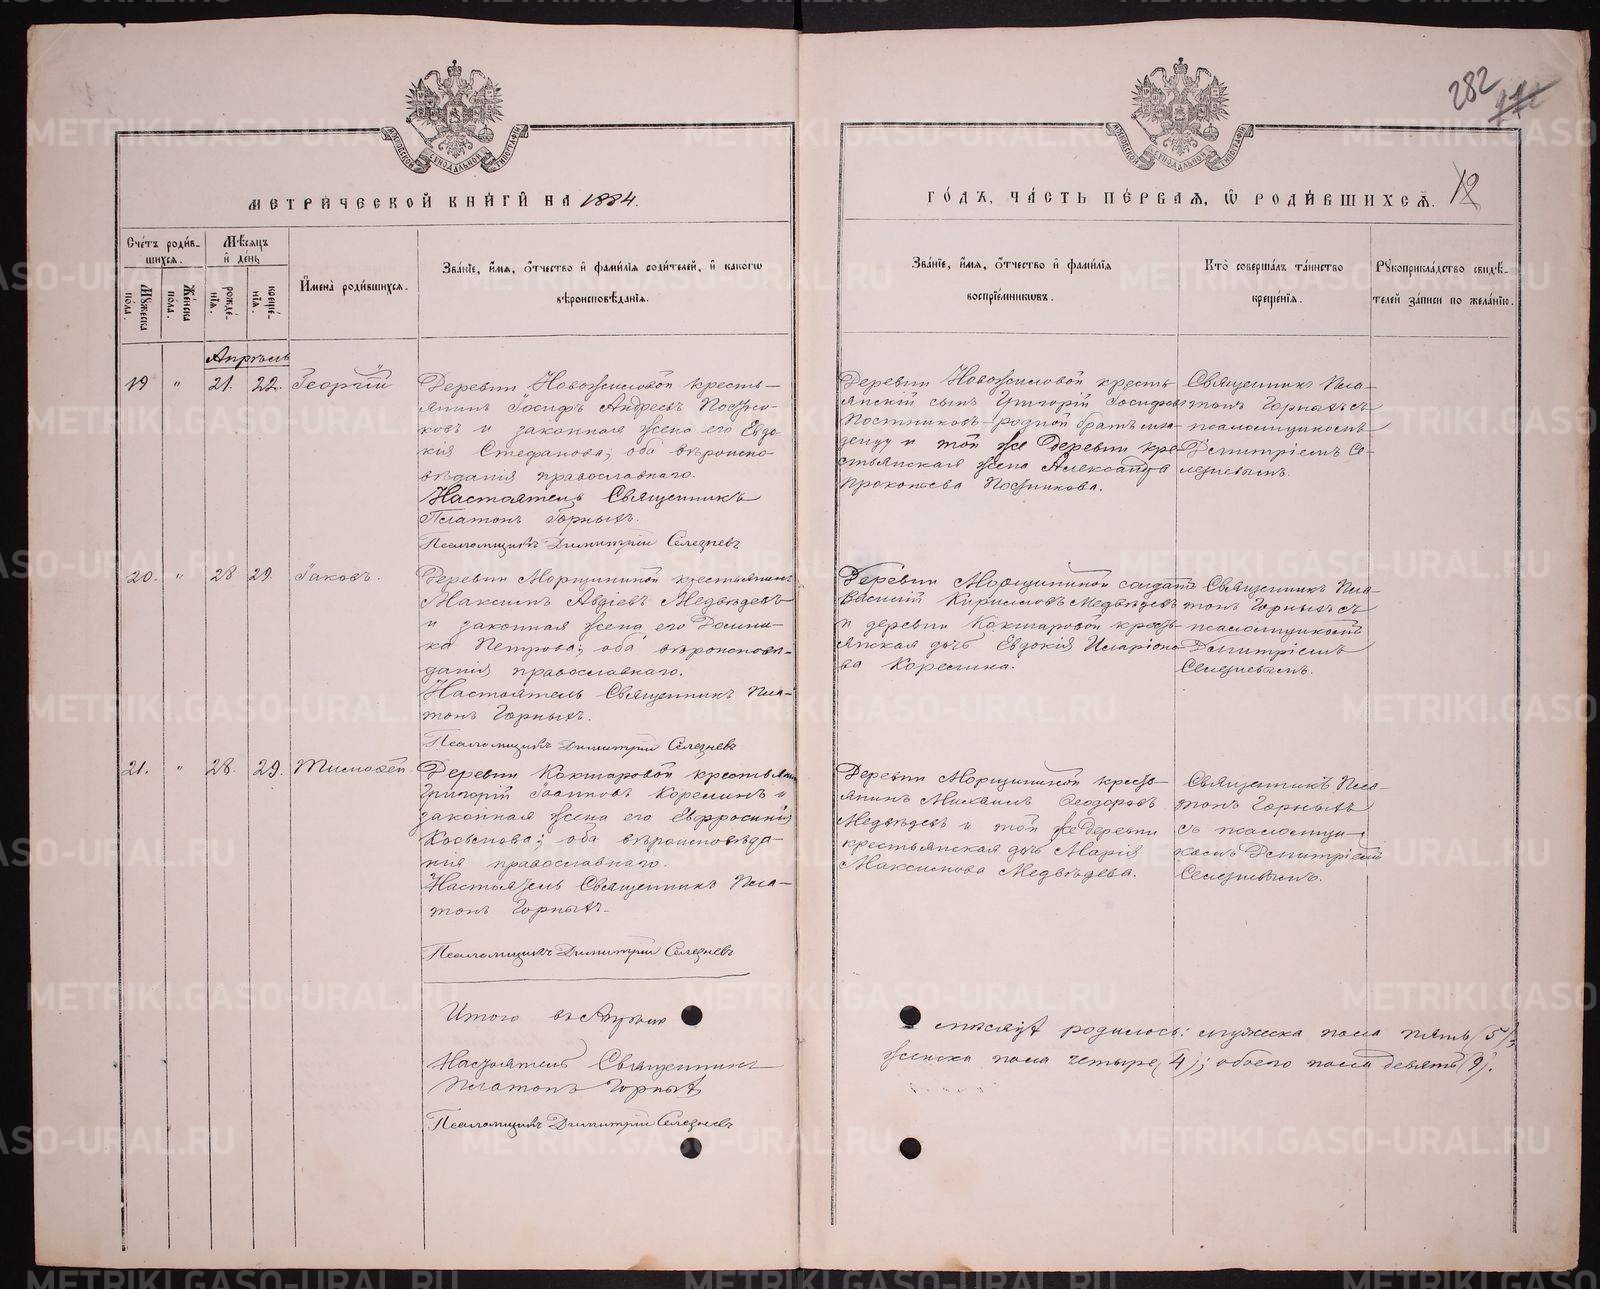 282
МЕТРИ́ЧЕСКОЙ КНИ́ГИ НА 1884.
ГО́ДЪ, ЧА́СТЬ ПЕ́РВАЯ, Ѡ РОДИ́ВШИХСЯ.
12
Сче́тъ роди́в-
шихся.
Мѣ́сяцъ
и҆ де́нь
Мꙋ́жеска
пола.
Же́нска
пола.
рожде́-
нїѧ.
креще́-
нїѧ.
И҆мена̀ роди́вшихся.
Зва́нїе, и҆́мѧ, ѻ҆́тчество и҆ фами́лїѧ роди́телей, и҆ какогѡ
вѣроисповѣ́данїѧ.
Зва́нїе, и҆́мѧ, ѻ҆́тчество и҆ фами́лїѧ
воспрїе́мникѡвъ.
Кто̀ соверша́лъ та́инство
креще́нїѧ.
Рꙋкоприкла́дство свидѣ́-
телей за́писи по жела́нїю.
Апрѣль
19 " 21. 22. Георгій
Деревни Новожиловой кресть-
янинъ Іосифъ Андреевъ Постни-
ковъ и законная жена его Евдо-
кія Стефанова; оба вѣроиспо-
вѣданія православнаго.
Настоятель Священникъ
Платонъ Горныхъ.
Псаломщикъ Димитрій Селезневъ
Деревни Новожиловой кресть-
янскій сынъ Григорій Іосифовъ
Постниковъ-родной братъ мла-
денцу и той же деревни кре-
стьянская жена Александра
Прокопьева Постникова.
Священникъ Пла-
тонъ Горныхъ съ
псаломщикомъ
Димитріемъ Се-
лезневымъ.
20. " 28 29. Іаковъ.
Деревни Морщининой крестьянинъ
Максимъ Авдіевъ Медвѣдевъ
и законная жена его Домни-
ка Петрова; оба вѣроисповѣ-
данія православнаго.
Настоятель Священникъ Пла-
тонъ Горныхъ.
Псаломщикъ Димитрій Селезневъ
Деревни Морщининой солдатъ
Василій Кирилловъ Медвѣдевъ
и деревни Кокшаровой кресть-
янская дочь Евдокія Иларіоно-
ва Корелина.
Священникъ Пла-
тонъ Горныхъ съ
псаломщикомъ
Димитріемъ
Селезневымъ.
21. " 28. 29. Тимоѳей
Деревни Кокшаровой крестьянинъ
Григорій Іоанновъ Корелинъ и
законная жена его Евфросинія
Косьмова; оба вѣроисповѣда-
нія православнаго.
Настоятель Священникъ Пла-
тонъ Горныхъ.
Псаломщикъ Димитрій Селезневъ
Деревни Морщининой кресть-
янинъ Михаилъ Ѳеодоровъ
Медвѣдевъ и той же деревни
крестьянская дочь Марія
Максимова Медвѣдева.
Священникъ Пла-
тонъ Горныхъ
съ псаломщи-
комъ Димитріемъ
Селезневымъ.
Итого въ Апрѣлѣ
мѣсяцѣ родилось: мужеска пола пять (5);
женска пола четыре (4); обоего пола девять (9).
Настоятель Священникъ
Платонъ Горныхъ
Псаломщикъ Димитрій Селезневъ
METRIKI.GASO-URAL.RU